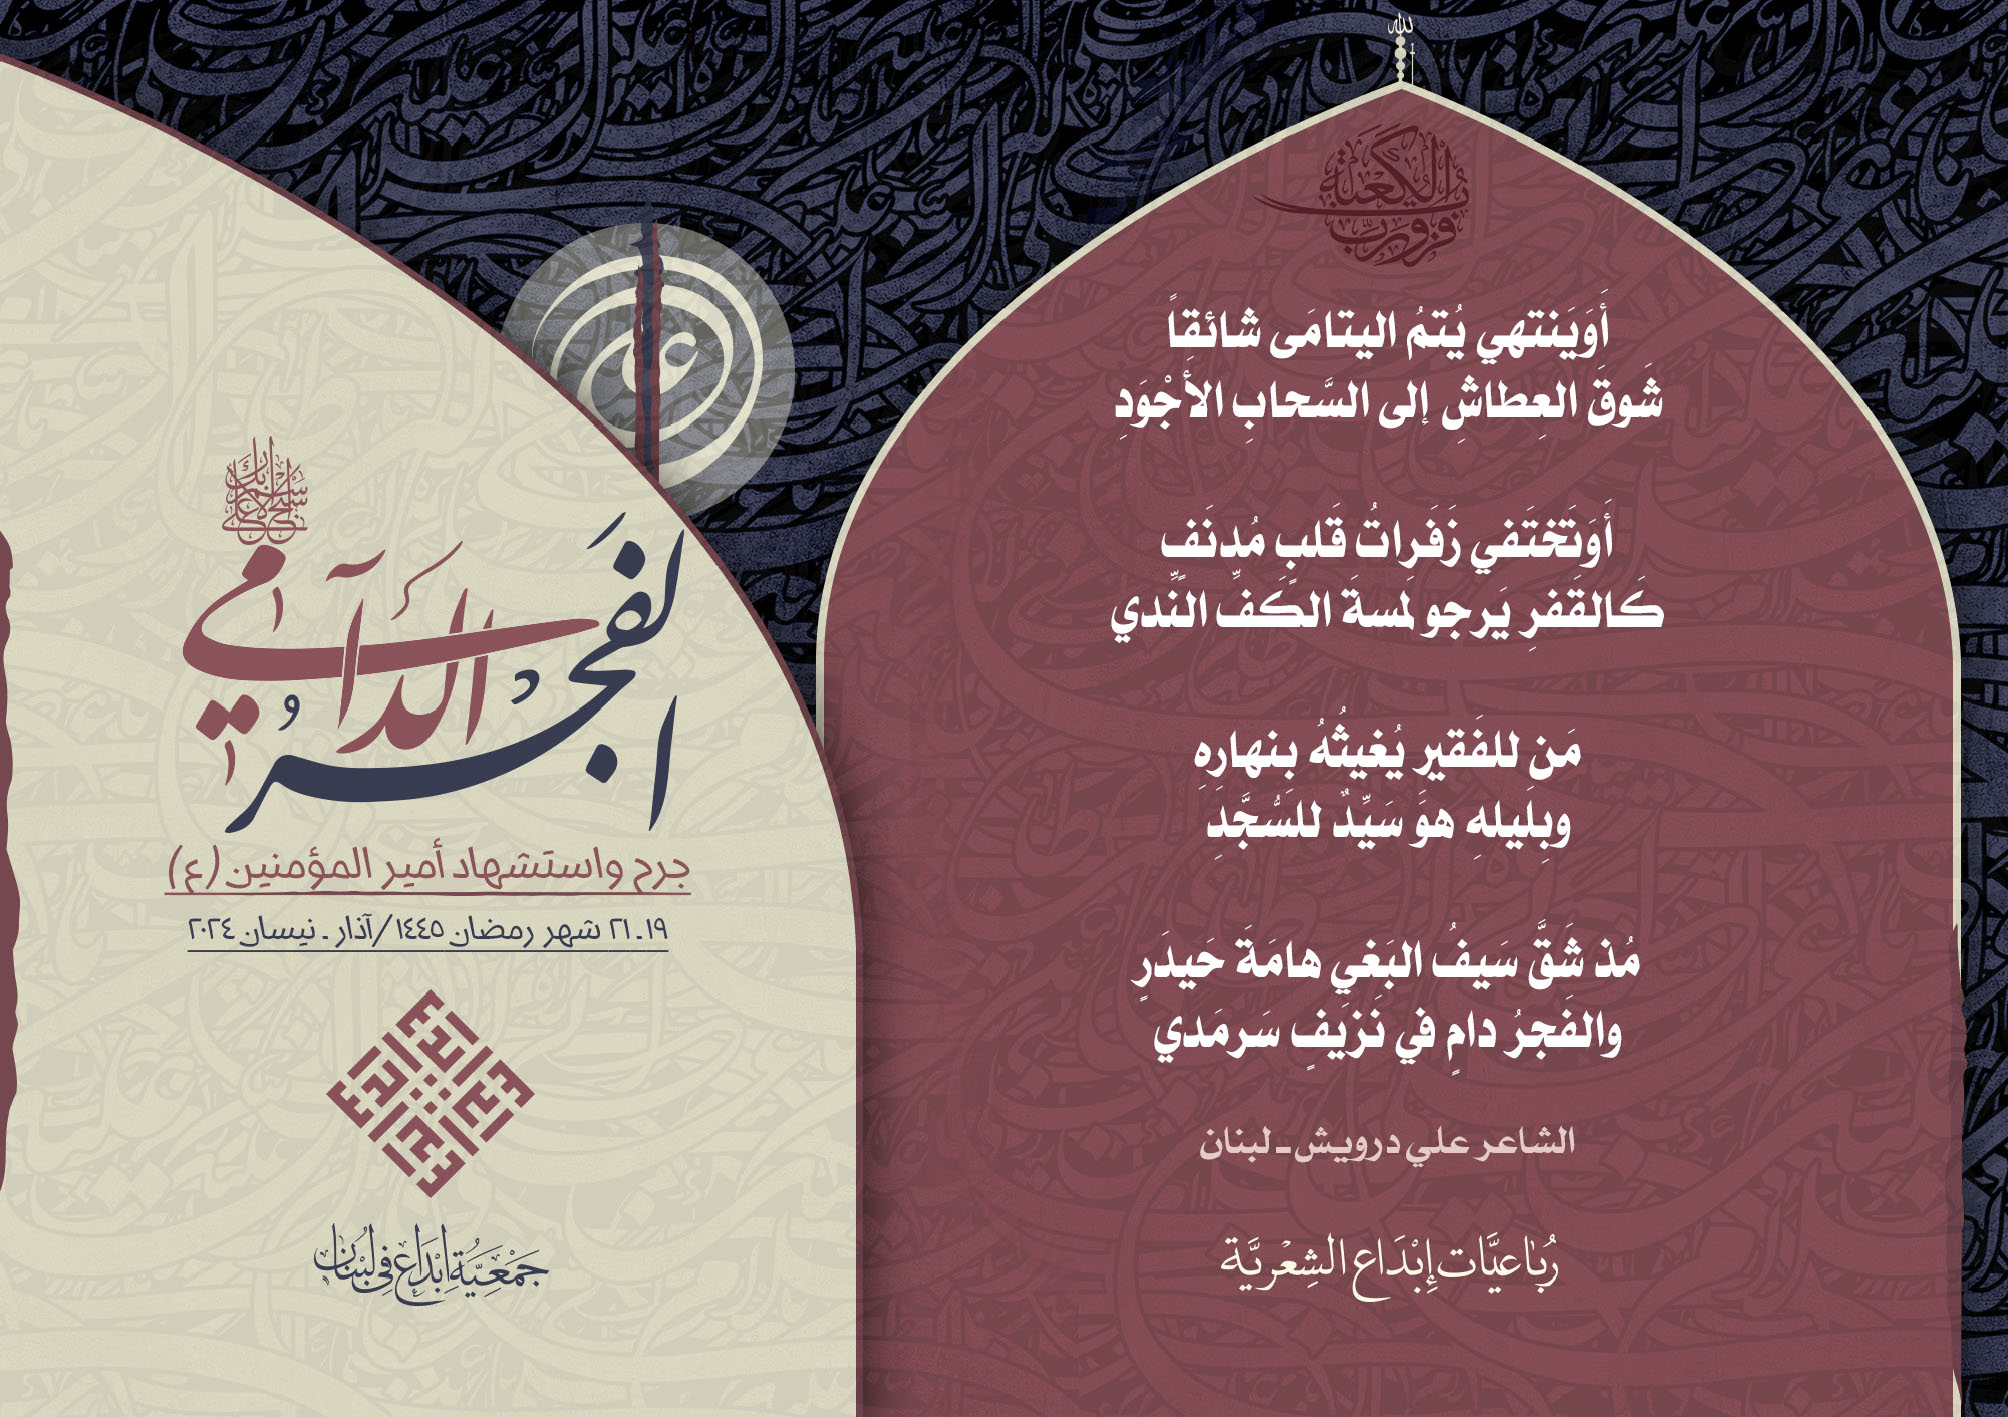 الله
فزت ورب الكعبة
أَوَيَنتهي يُتمُ اليتامَى شائقاً
شَوقَ العِطاشِ إلى السَّحابِ الأَجْوَدِ
أَوَتَختَفي زَفَراتُ قَلبٍ مُدنَفٍ
كَالقَفرِ يَرجو لَمسةَ الكَفِّ النَّدي
مَن للفَقيرِ يُغيثُهُ بنهارِهِ
وبِليلهِ هوَ سَيِّدٌ للسُّجَّدِ
مُذ شَقَّ سَيفُ البَغي هامَةَ حَيدَرٍ
والفَجرُ دامٍ في نَزيفٍ سَرمَدي
الشاعر علي درويش ـ لبنان
رُبَاعيَّات إِبْدَاع الشِعريَّة
علي
سبح اسم ربك الأعلى
الفَجرُ الدَّامي
الفَجر
جرح واستشهاد أمير المؤمنين (ع)
١٩ـ٢١ شهر رمضان ١٤٤٥ /آذار ـ نيسان ٢٠٢٤
جَمْعِيَّة إِبْدَاع فِي لُبْنَان